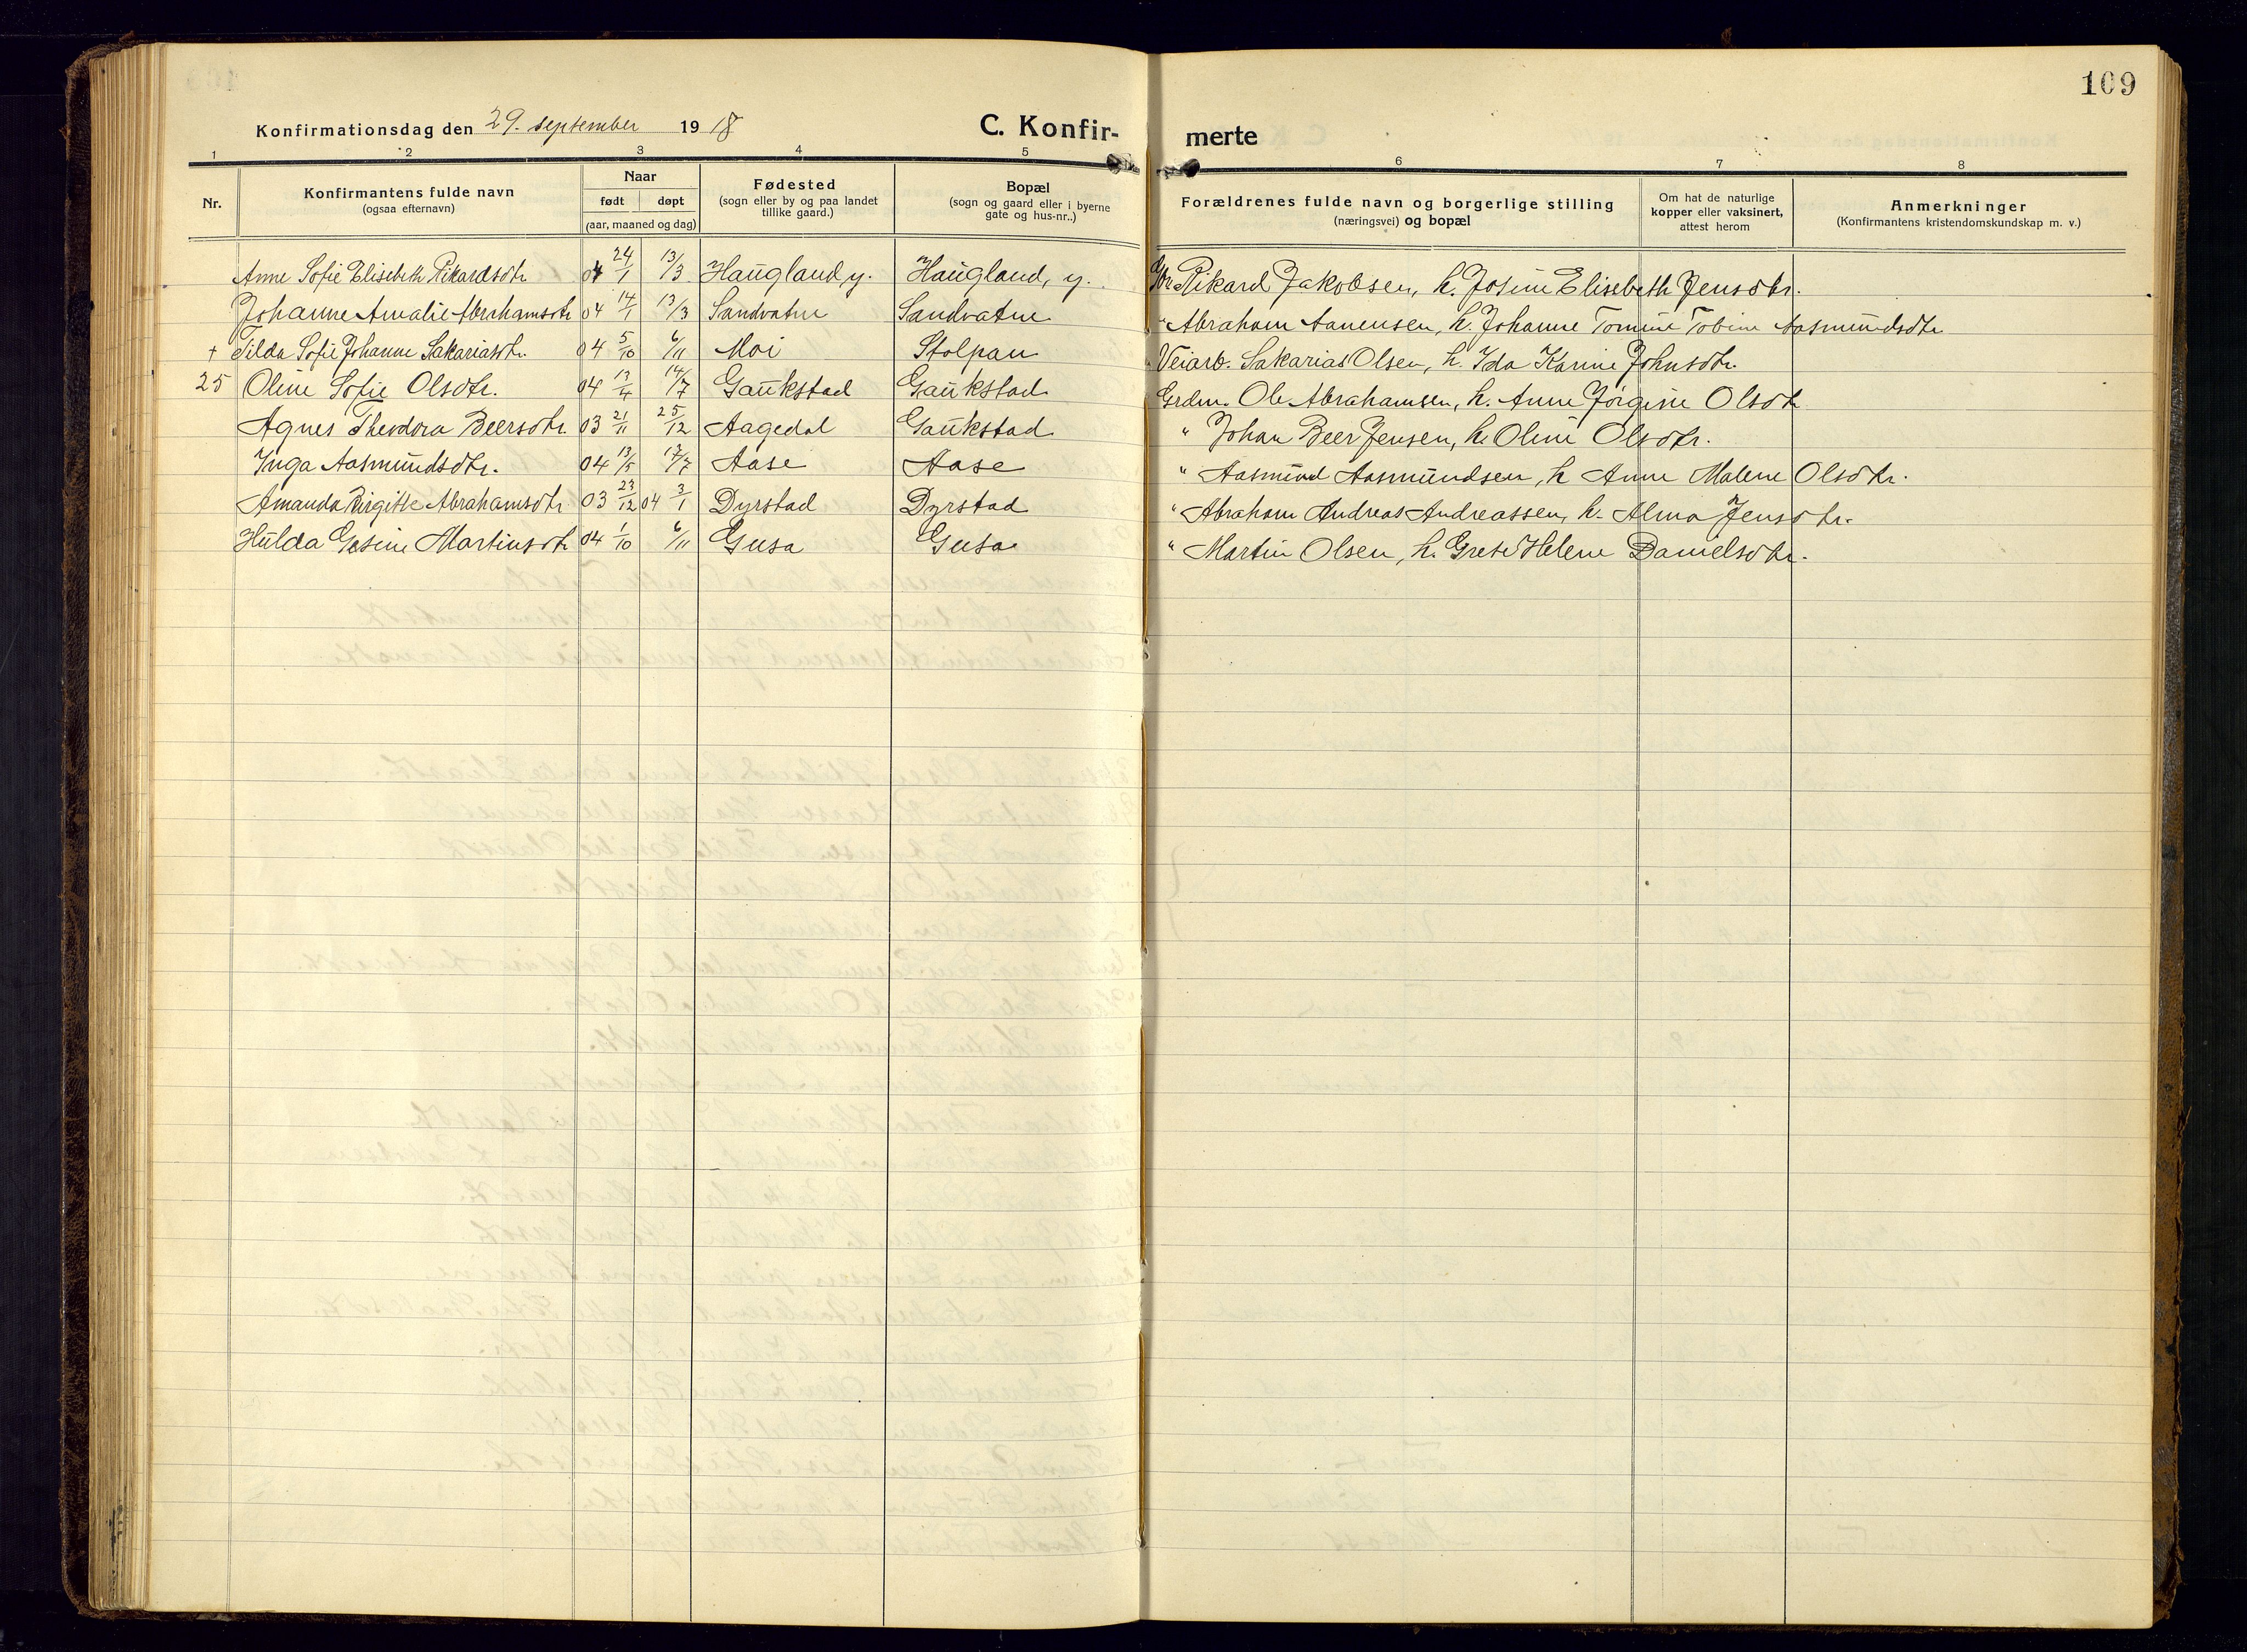 109
Konfirmationsdag den 29. september 1918
C. Konfir-
merte
1 2 3 4 5 6 7 8
Nr.
Konfirmantens fulde navn
(ogsaa efternavn)
Naar
født døpt
(aar, maaned og dag)
Fødested
(sogn eller by og paa landet
tillike gaard.)
Bopæl
(sogn og gaard eller i byerne
gate og hus-nr..)
Forældrenes fulde navn og borgerlige stilling
(næringsvei) og bopæl
Om hat de naturlige
kopper eller vaksinert,
attest herom
Anmerkninger
(Konfirmantens kristendomskundskap m. v.)
Anne Sofie Elisebeth Rikardsdtr 04 24/1 13/3 Haugland, y. Haugland, y. Rikard Jakobsen, h. Josine Elisebeth Jensdtr.
Johanne Amalie Abrahamsdtr 04 14/1 13/3 Sandvatne Sandvatne " Abraham Aanensen, h. Johanne Tomine Tobine Aasmundsdtr
+ Tilda Sofie Johanne Sakariasdtr. 04 5/10 6/11 Moi Stolpan Veiarb. Sakarias Olsen, h. Ida Karine Johnsdtr.
25 Oline Sofie Olsdtr. 04 13/4 14/7 Gaukstad Gaukstad Grdm. Ole Abrahamsen, h. Anne Jørgine Olsdtr
Agnes Theodora Beersdtr. 03 21/11 25/12 Aagedal Gaukstad " Johan Beer Jensen, h. Oline Olsdtr.
Inga Aasmundsdtr. 04 13/5 17/7 Aase Aase " Aasmund Aasmundsen, h Anne Malene Olsdtr.
Amanda Birgitte Abrahamsdtr 03 23/12 04 3/1 Dyrstad Dyrstad " Abraham Andreas Andreassen, h. Alma Jensdtr.
Hulda Gesine Martinsdtr 04 1/10 6/11 Gusa Gusa " Martin Olsen, h. Grete Helene Danielsdtr.